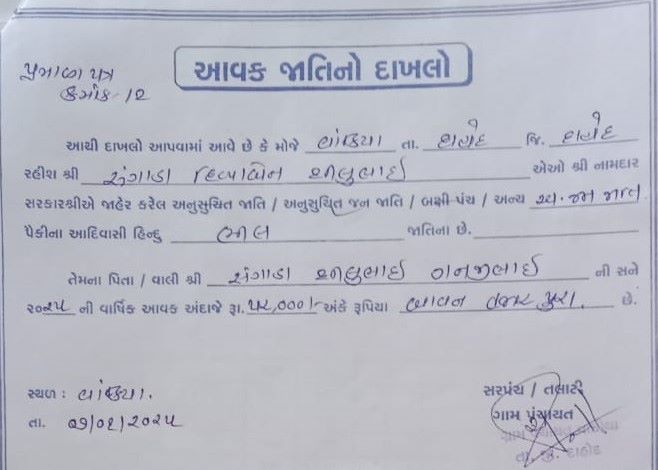 પ્રમાણ પત્ર
ક્રમાંક-12
આવક જાતિનો દાખલો
આથી દાખલો આપવામાં આવે છે કે મોજે વાંકિયા તા. દાહોદ જિ. દાહોદ
રહીશ શ્રી સંગાડા દિવ્યાબેન શીલુભાઈ એઓ શ્રી નામદાર
સરકારશ્રીએ જાહેર કરેલ અનુસુચિત જાતિ / અનુસુચિત જન જાતિ / બક્ષી પંચ / અન્ય અ.જ જાત
પૈકીના આદિવાસી હિન્દુ ભીલ જાતિના છે.
તેમના પિતા / વાલી શ્રી સંગાડા શીલુભાઈ ની સને
૨૦૨૫ ની વાર્ષિક આવક અંદાજે રૂા. ૫૨,૦૦૦/- અંકે રૂપિયા બાવન હજાર પુરા. છે.
સ્થળ : વાંકિયા.
તા. ૦૧/૦૨/૨૦૨૫
સરપંચ / તલાટી
ગ્રામ પંચાયત
તા. જી. દાહોદ